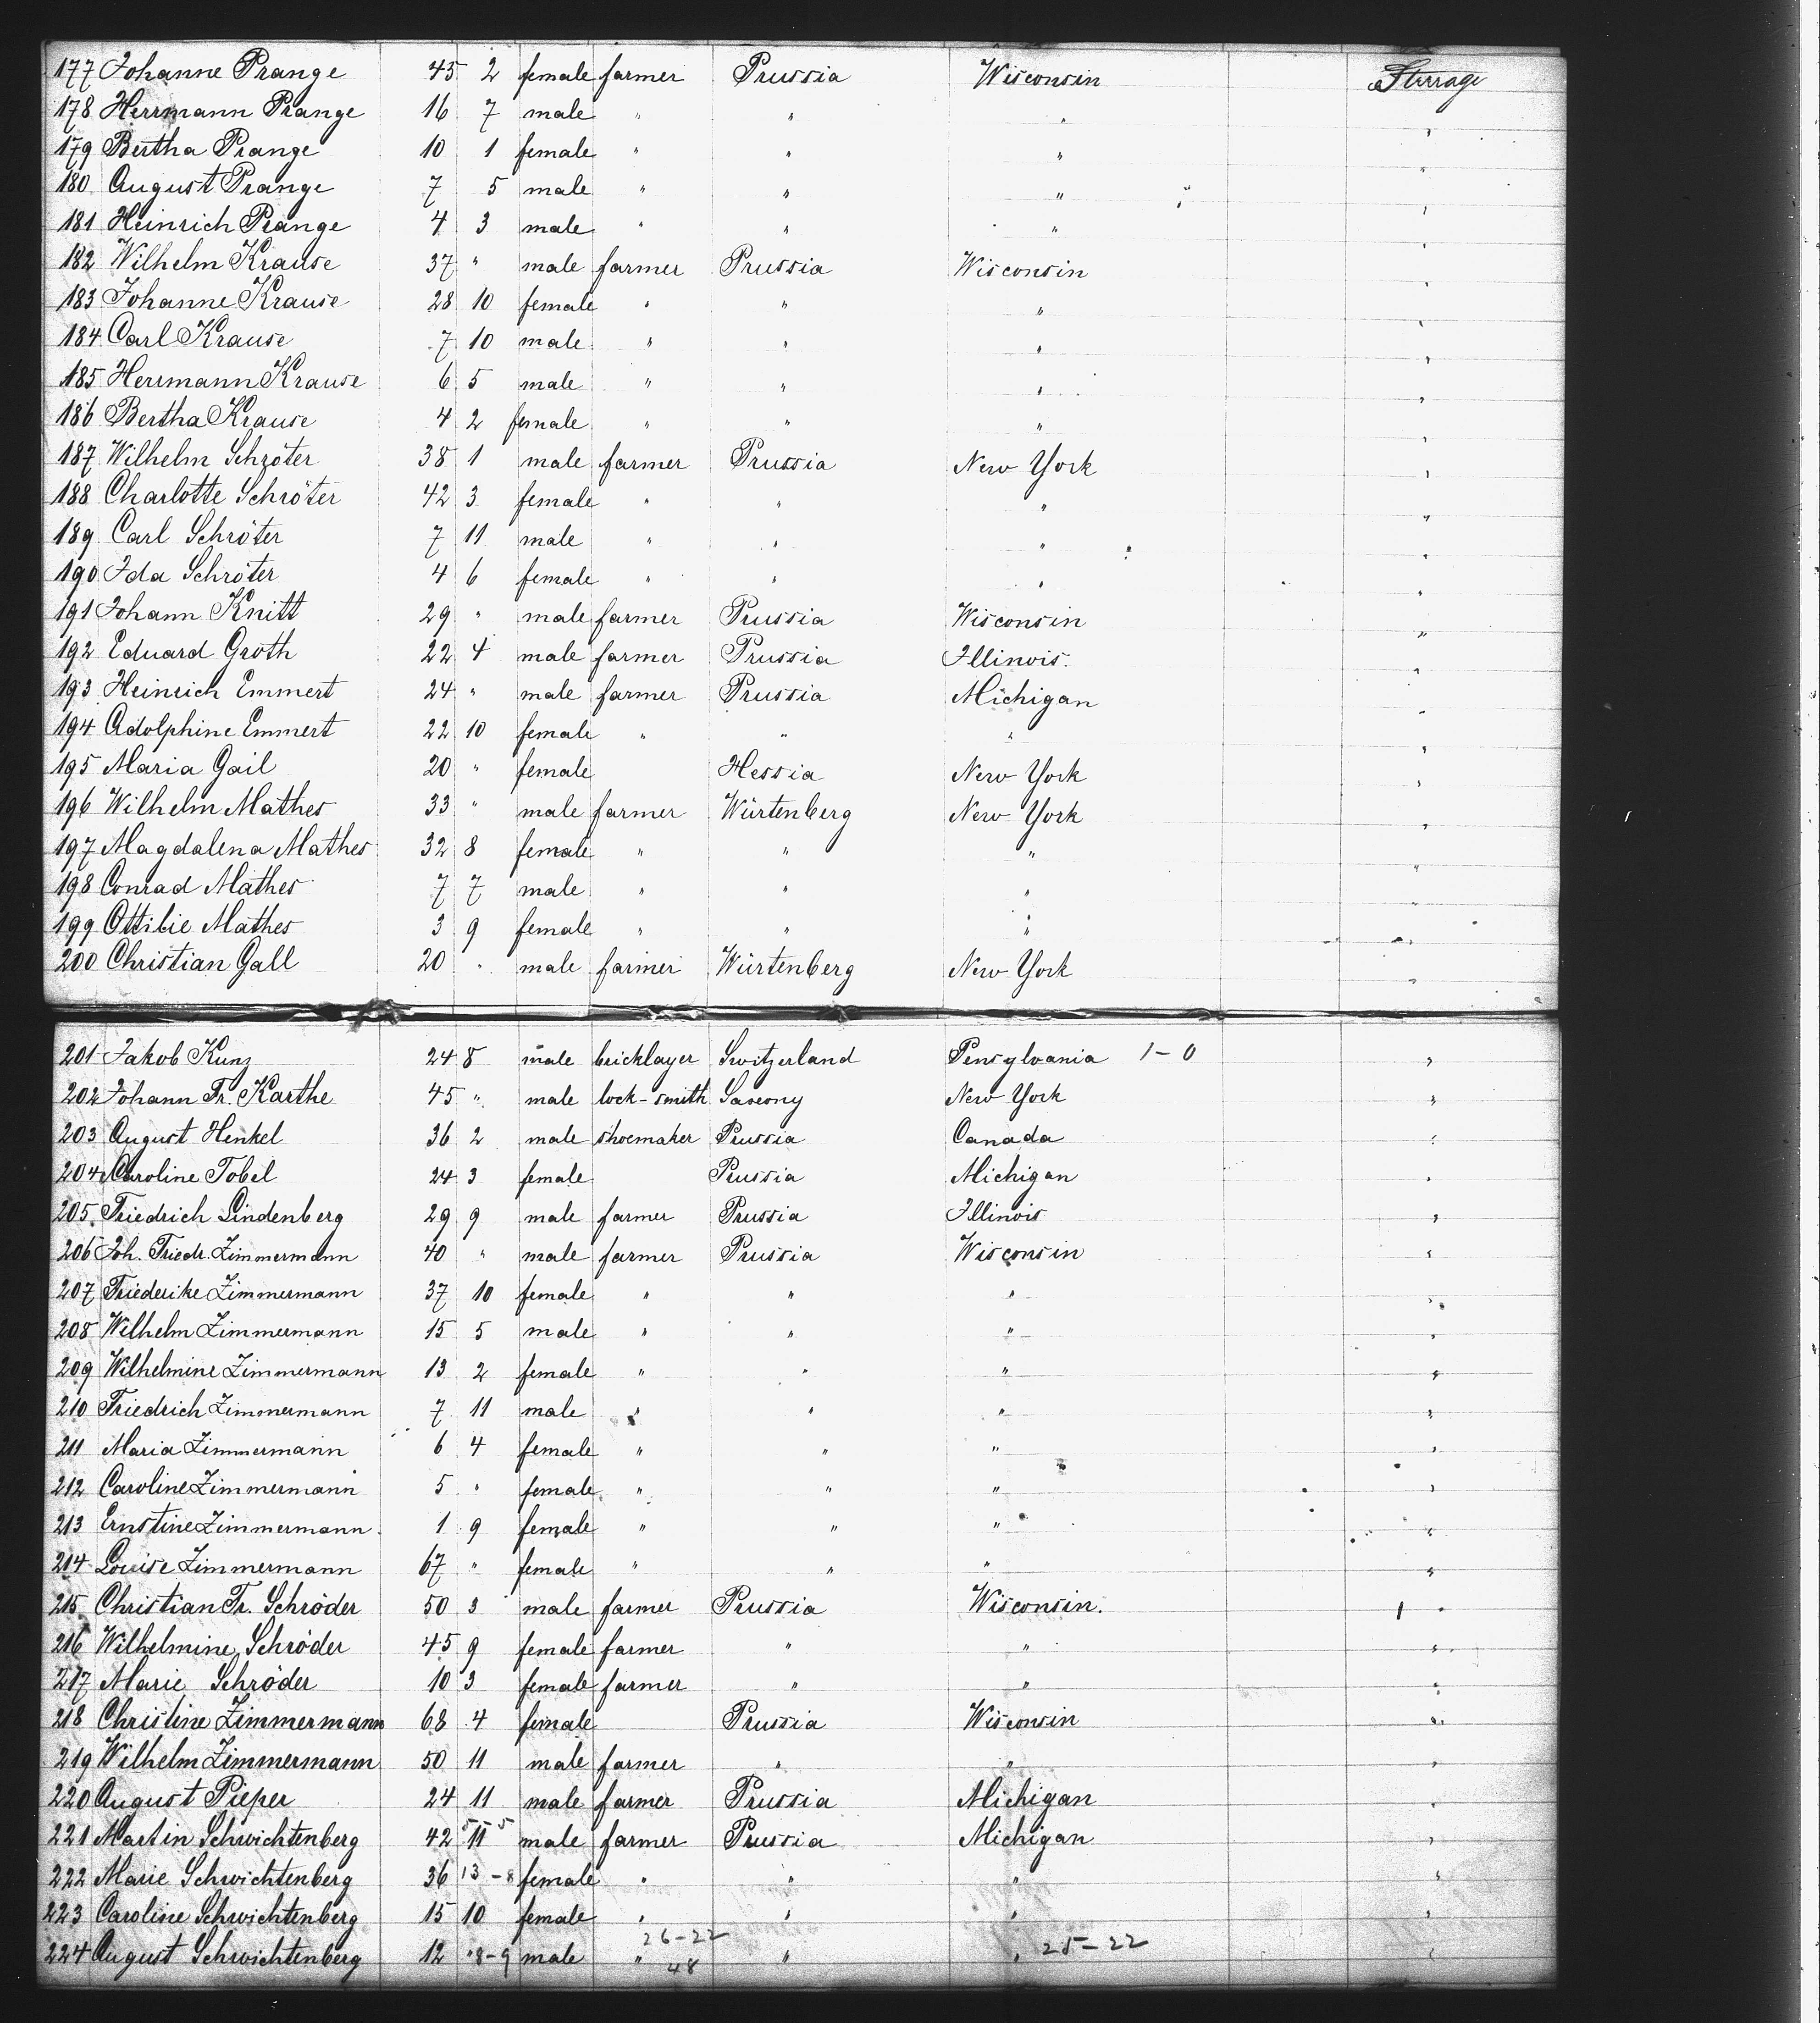 177 Johanne Prange 45 2 female farmer Prussia Wisconsin Sterrage
178 Herrmann Prange 16 7 male " " " "
179 Bertha Prange 10 1 female " " " "
180 August Prange 7 5 male " " " "
181 Heinrich Prange 4 3 male " " " "
182 Wilhelm Krause 37 " male farmer Prussia Wisconsin "
183 Johanne Krause 28 10 female " " " "
184 Carl Krause 7 10 male " " " "
185 Herrmann Krause 6 5 male " " " "
186 Bertha Krause 4 2 female " " " "
187 Wilhelm Schröter 38 1 male farmer Prussia New York "
188 Charlotte Schröter 42 3 female " " " "
189 Carl Schröter 7 11 male " " " "
190 Ida Schröter 4 6 female " " " "
191 Johann Knitt 29 " male farmer Prussia Wisconsin "
192 Eduard Groth 22 4 male farmer Prussia Illinois. "
193 Heinrich Emmert 24 " male farmer Prussia Michigan "
194 Adolphine Emmert 22 10 female " " " "
195 Maria Gail 20 " female Hessia New York "
196 Wilhelm Mathes 33 " male farmer Würtenberg New York "
197 Magdalena Mathes 32 8 female " " " "
198 Conrad Mathes 7 7 male " " " "
199 Ottilie Mathes 3 9 female " " " "
200 Christian Gall 20 " male farmer Würtenberg New York "
201 Jakob Kunz 24 8 male bricklayer Switzerland Pensylvania 1-0 "
202 Johann Fr. Karthe 45 " male lock-smith Saxony New York "
203 August Henkel 36 2 male shoemaker Prussia Canada "
204 Caroline Tobel 24 3 female Prussia Michigan "
205 Friedrich Lindenberg 29 9 male farmer Prussia Illinois "
206 Joh. Friedr. Zimmermann 40 " male farmer Prussia Wisconsin "
207 Friederike Zimmermann 37 10 female " " " "
208 Wilhelm Zimmermann 15 5 male " " " "
209 Wilhelmine Zimmermann 13 2 female " " " "
210 Friedrich Zimmermann 7 11 male " " " "
211 Maria Zimmermann 6 4 female " " " "
212 Caroline Zimmermann 5 " female " " " "
213 Ernstine Zimmermann 1 9 female " " " "
214 Louise Zimmermann 67 " female " " " "
215 Christian Fr. Schröder 50 3 male farmer Prussia Wisconsin. "
216 Wilhelmine Schröder 45 9 female farmer " " "
217 Marie Schröder 10 3 female farmer " " "
218 Christine Zimmermann 68 4 female Prussia Wisconsin "
219 Wilhelm Zimmermann 50 11 male farmer " " "
220 August Pieper 24 11 male farmer Prussia Michigan "
221 Martin Schwichtenberg 42 11 male farmer Prussia Michigan "
222 Marie Schwichtenberg 36 13-8 female " " " "
223 Caroline Schwichtenberg 15 10 female " " " "
26-22 25-22
224 August Schwichtenberg 12 "8-9 male " " " "
48